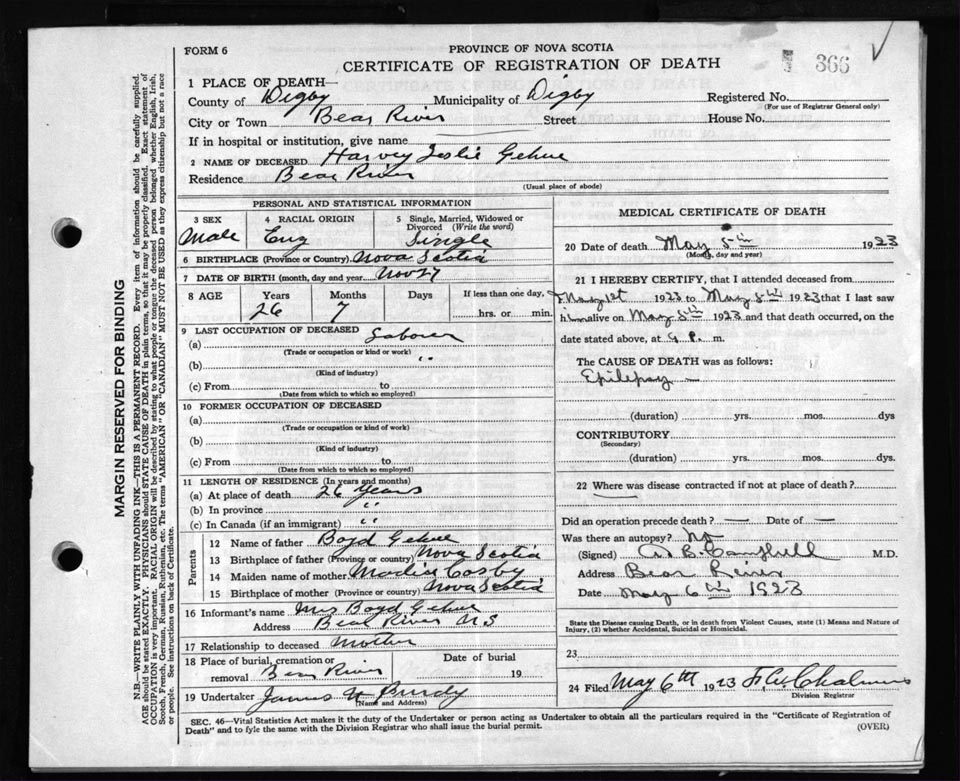 FORM 6
PROVINCE OF NOVA SCOTIA
CERTIFICATE OF REGISTRATION OF DEATH
366
1 PLACE OF DEATH—
County of Digby Municipality of Digby Registered No.
(For use of Registrar General only)
City or Town Bear River Street House No.
If in hospital or institution, give name
2 NAME OF DECEASED Harvey Leslie Gehue
Residence Bear River
(Usual place of abode)
PERSONAL AND STATISTICAL INFORMATION
3 SEX 4 RACIAL ORIGIN 5 Single, Married, Widowed or Divorced (Write the word)
Male Eng Single
6 BIRTHPLACE (Province or Country) Nova Scotia
7 DATE OF BIRTH (month, day and year) Nov 27
8 AGE Years Months Days If less than one day,
26 7 hrs. or min.
9 LAST OCCUPATION OF DECEASED
(a) Labourer
(Trade or occupation or kind or work)
(b) "
(Kind of industry)
(c) From to
(Date from which to which so employed)
10 FORMER OCCUPATION OF DECEASED
(a)
(Trade or occupation or kind of work)
(b)
(Kind of industry)
(c) From to
(Date from which to which so employed)
11 LENGTH OF RESIDENCE (In years and months)
(a) At place of death 26 Years
(b) In province "
(c) In Canada (if an immigrant) "
Parents
12 Name of father Boyd Gehue
13 Birthplace of father (Province or country) Nova Scotia
14 Maiden name of mother Cosby
15 Birthplace of mother (Province or country) Nova Scotia
16 Informant's name Mrs Boyd Gehue
Address Bear River N S
17 Relationship to deceased Mother
18 Place of burial, cremation or removal Bear River Date of burial 19
19 Undertaker James Purdy
(Name and Address)
MEDICAL CERTIFICATE OF DEATH
20 Date of death May 5th 1923
(Month, day and year)
21 I HEREBY CERTIFY, that I attended deceased from
May 1st 1923 to May 5th 1923 that I last saw
him alive on May 5th 1923 and that death occurred, on the
date stated above, at 9 P. m.
The CAUSE OF DEATH was as follows:
Epilepsy —
(duration) yrs. mos. dys
CONTRIBUTORY
(Secondary)
(duration) yrs. mos. dys.
22 Where was disease contracted if not at place of death?
Did an operation precede death? — Date of —
Was there an autopsy? No
(Signed) B. Campbell M.D.
Address Bear River
Date May 6th 1923
State the Disease causing Death, or in death from Violent Causes, state (1) Means and Nature of
Injury, (2) whether Accidental, Suicidal or Homicidal.
23
24 Filed May 6th 1923 Chalmers
Division Registrar
SEC. 46—Vital Statistics Act makes it the duty of the Undertaker or person acting as Undertaker to obtain all the particulars required in the "Certificate of Registration of
Death" and to fyle the same with the Division Registrar who shall issue the burial permit.
(OVER)
MARGIN RESERVED FOR BINDING
N.B.—WRITE PLAINLY WITH UNFADING INK—THIS IS A PERMANENT RECORD. Every item of information should be carefully supplied.
AGE should be stated EXACTLY. PHYSICIANS should STATE CAUSE OF DEATH in plain terms, so that it may be properly classified. Exact statement of
OCCUPATION is very important. RACIAL ORIGIN will be described by stating to what people or tongue the deceased person belonged whether English, Irish,
Scotch, French, German, Russian, Ruthenian, etc. The terms "AMERICAN" OR "CANADIAN" MUST NOT BE USED as they express citizenship but not a race
or people. See instructions on back of Certificate.